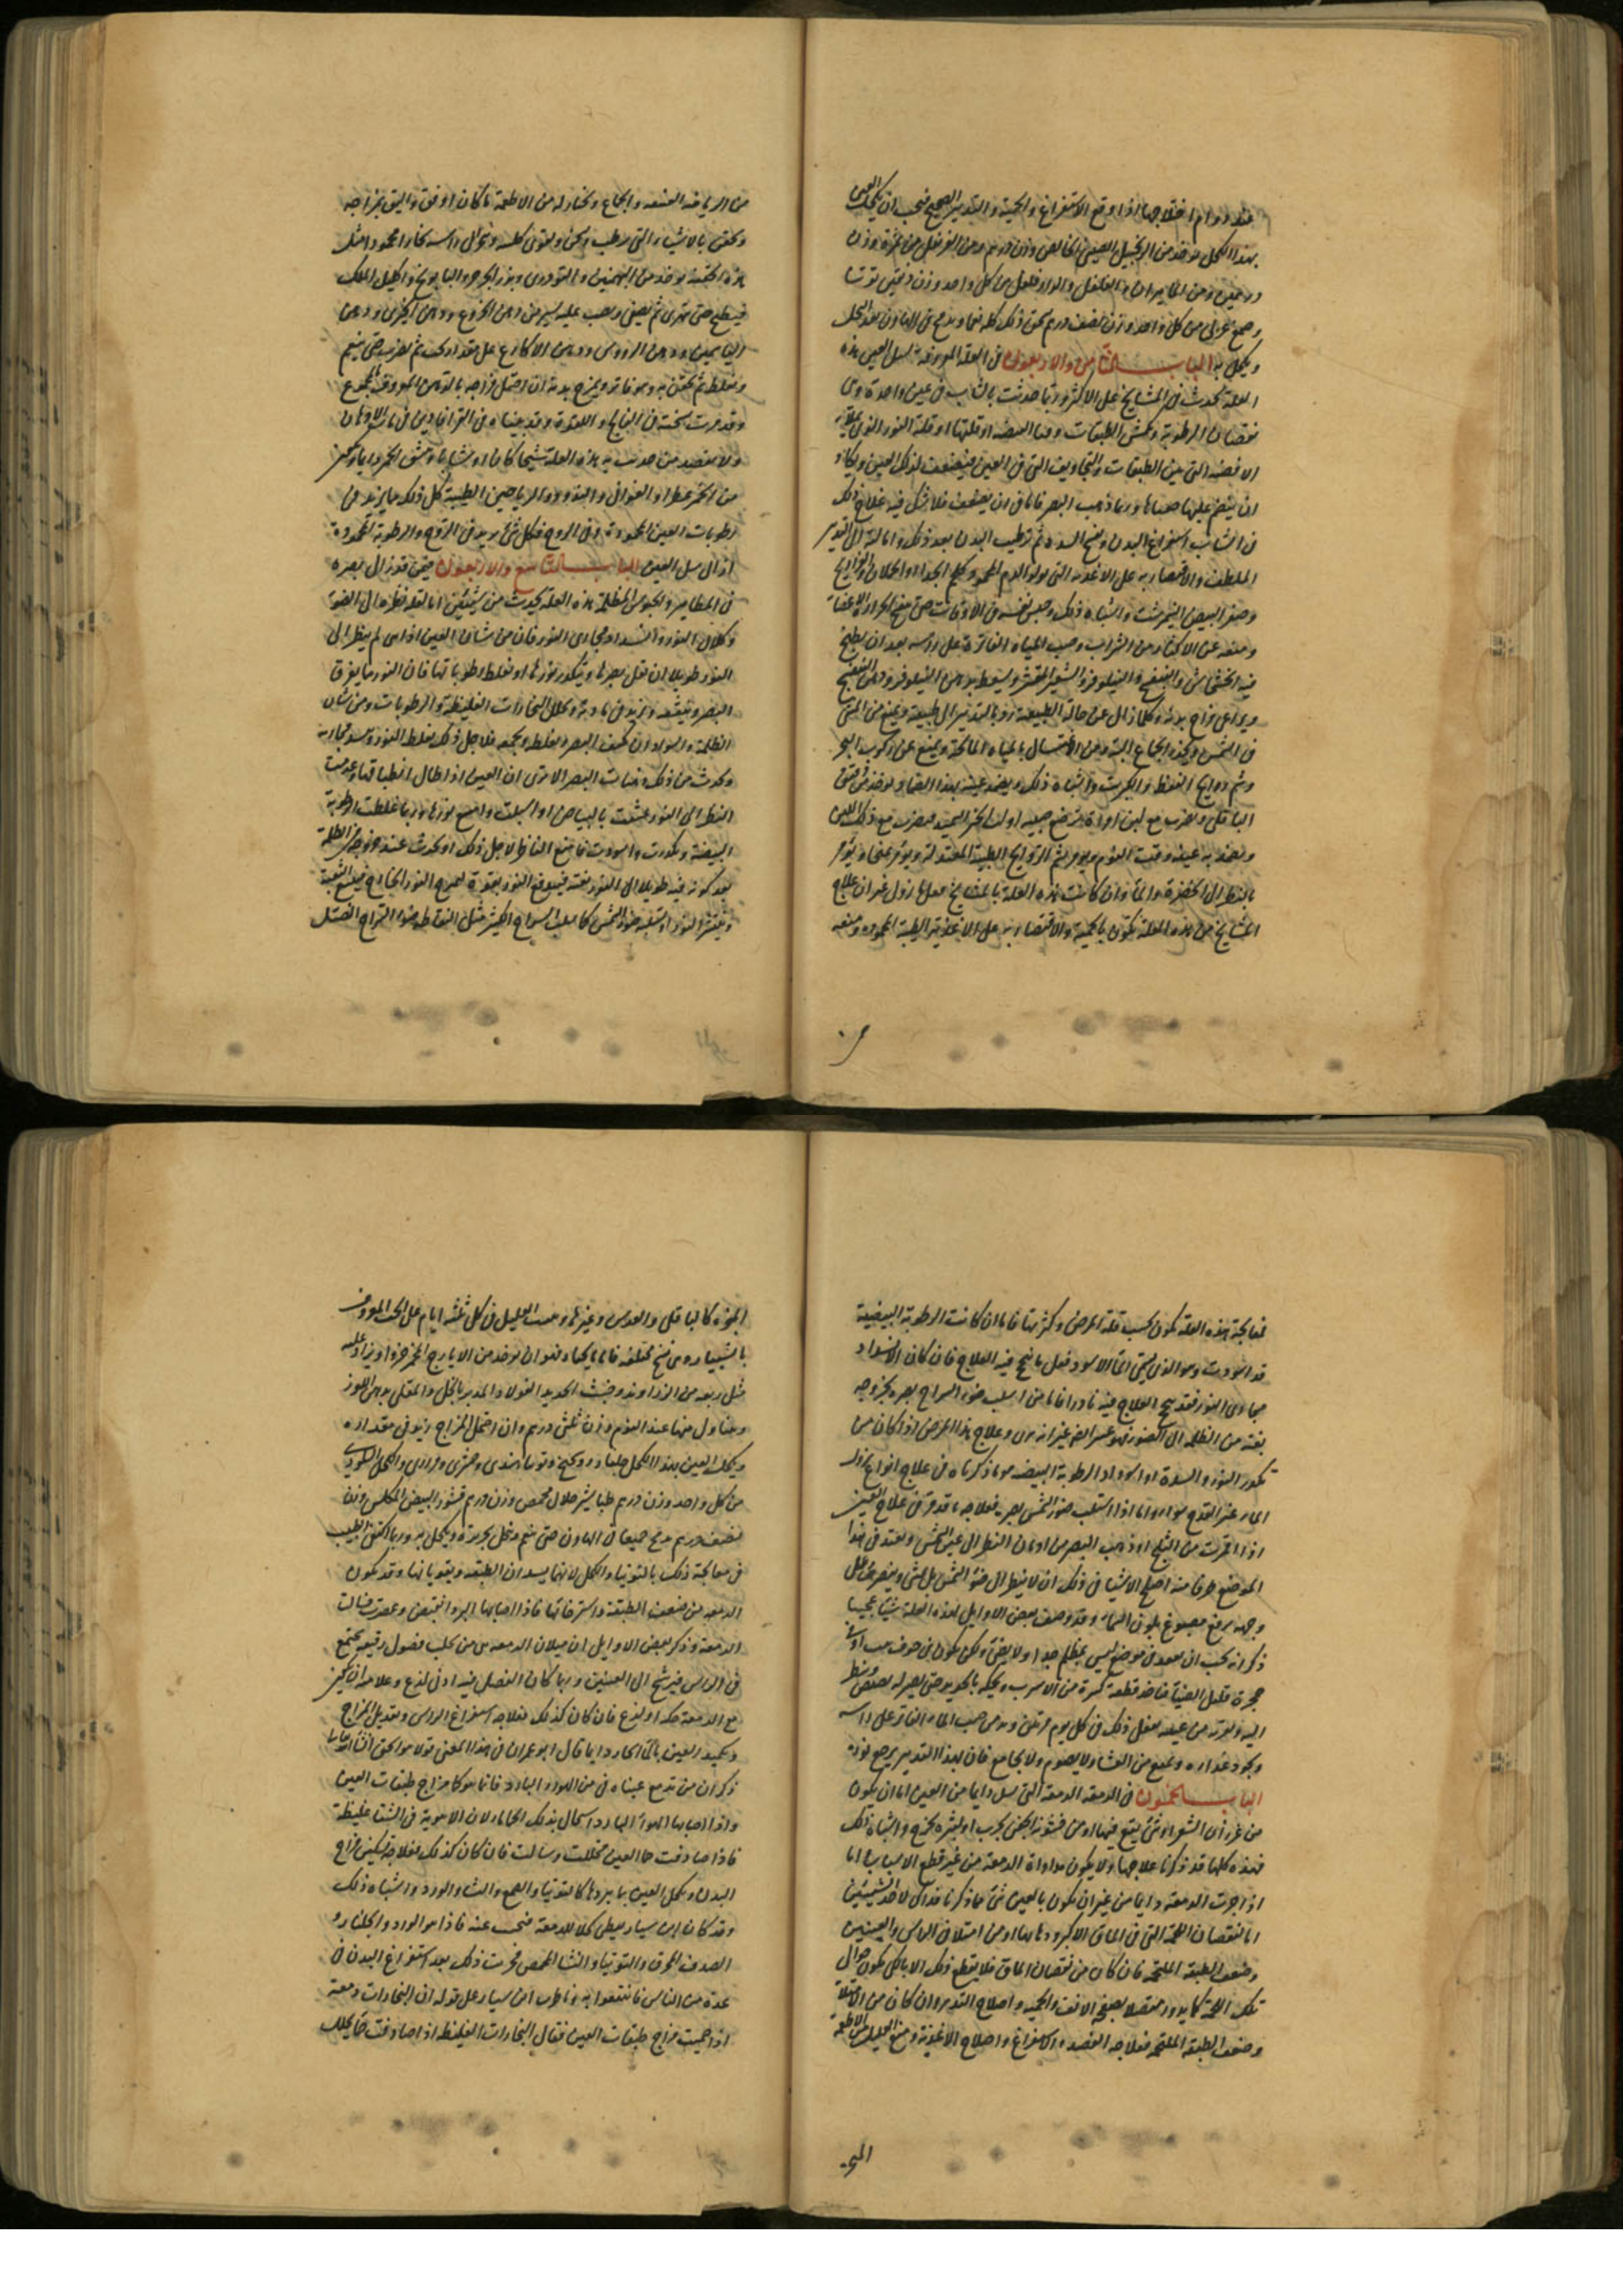 عند دوام اختلاجها اذا وقع الاستفراغ والحمية والتدبير الصحيح فيجب ان يكحل العين
بهذا الكحل يوخذ من الزنجبيل الصيني الخالص وزن درهم ومن القرنفل من غيره وزن
درهمين ومن الماميران والفلفل والدارفلفل من كل واحد وزن دانقين توتيا
وصمغ عربي من كل واحد وزن نصف درهم يسحق ذلك كله نعما ويدعج في الهاون بعد النخل
ويكحل به الباب الثامن والاربعون في العلة المعروفة بسل العين هذه
العلة تحدث في المشايخ على الاكثر وربما حدثت بالشباب في عين واحدة وهي
نقصان الرطوبة وتكمش الطبقات وفناء البيضية او قلتها او قلة النور الذي يملأ
الافضية التي بين الطبقات والتجاويف التي في العين فيضعف لذلك العين ويكاد
ان ينضم عليها جفناها وربما ذهب البصر فاما في ان يضعف فلا شك فيه علاج ذلك
في الشباب استفراغ البدن وفتح السدد ثم ترطيب البدن بعد ذلك وامالته الى التدبير
الملطف والاقتصار به على الاغذية التي تولد الدم المحمود كلحم الجداء والحملان والفراريج
وصفر البيض النيمرشت واشباه ذلك وحبس نفسه في الاوقات حتى تنتهي الحرارة الاعضاء
ومنعه عن الاكثار من الشراب وصب المياه الفاترة على راسه بعد ان يطبخ
فيه الخشخاش والبنفسج والنيلوفر والشعير المقشر ويسعط بدهن النيلوفر ودهن البنفسج
ويراعى مزاج بدنه وكلما زال عن حاله الطبيعية رد بالتدبير الى طبيعته ويمنع من المشي
في الشمس ويحذر الجماع البتة ومن الاغتسال بالمياه المالحة ويمنع عن ركوب البحر
وشم روايح النفط والكبريت واشباه ذلك ويضمد عينيه بهذا الضماد يوخذ من دقيق
الباقلى ويضرب مع لبن امراة ترضع صبيه او لباب الخبز السميد يضرب مع ذلك اللبن
ويضمد به عينه وقت النوم ويومر بشم الروايح الطيبة المعتدلة ويومر بلحماء ويومر
بالنظر الى الخضرة والماء وان كانت هذه العلة بالمشايخ فعلها تزول غير ان علاج
المشايخ من هذه العلة تكون بالحمية والاقتصار به على الاغذية الرطبة المحمودة ومنعه
من الرياضة العنيفة والجماع ويختار له من الاطعمة ما كان اوفق واليق بمزاجه
ويحقن بالاشياء التي ترطب ويخن ويقوي كلاه وتحلل راسه بخارا محمودا مثل
هذه الحقنة يوخذ من البهمنين والتودري وبزر الجرجير والبابونج واكليل الملك
فيطبخ حتى يتهرى ثم يصفى ويصب عليه شيء من دهن الخروع ودهن الخيري ودهن
الياسمين ودهن الرووس ودهن الاكارع على مقدار ذلك ثم يضرب حتى ينعم
ويغلظ ثم يحقن به وهو فاتر ويمرخ بدنه ان احتمل مزاجه بالدهن المعروف المجموع
وقد مرت نسخته في الفالج واللقوة وقد بيناه في القرابادين في باب الادهان
ولا يفصد من حدثت به هذه العلة شيخا كان او شابا ويسقى الخمر دايما وتكون
من الخمر عطرا والغوالي والند وورد الرياحين الطيبة كل ذلك مما يزيد في
رطوبات العين المحمودة وفي الروح فكل شيء يزيد في الروح والرطوبة المحمودة
ازال سل العين الباب التاسع والاربعون فيمن قد زال بصره
في المطامير والحبوس المظلمة هذه العلة تحدث من شيئين اما لفقد نظره الى الضوء
وكلال النور وانسداد مجاري النور فان من شان العين اذا هي لم ينظر الى
النور طويلا ان يقل بصرها ويتكدر نورها او يغلظ رطوباتها فان النور مما يفرق
البصر ويبثه ويزيد في مادته ويحلل البخارات الغليظة والرطوبات ومن شان
الظلمة والسواد ان يكثف البصر ويغلظه ويجمعه فلاجل ذلك يغلظ النور ويسد مجاريه
ويحدث من ذلك ذهاب البصر الا ترى ان العين اذا طال انطباقها وعدمت
النظر الى النور غشيت بالبياض او انسبلت وامتنع نورها وربما غلظت الرطوبة
البيضية وتكدرت واسودت فامتنع الناظر لاجل ذلك او تحدث عند خروجه من الظلمة
بعد كونه فيه طويلا الى النور بغتة فيلاقي النور بقوة لخروج النور الخارج فيتسع الثقبة
وينتثر النور او يسلبه ضوء الشمس كما يسلب السراج الكبير مثل النفاط ضوء السراج الضئيل
فمعالجة هذه العلة تكون بحسب قلة المرض وكثرتها فاما ان كانت الرطوبة البيضية
قد اسودت وهو الذي يسمى الماء الاسود فقل ما ينجح فيه العلاج فان كان الانسداد
مجاري النور فقد ينجح العلاج فيه نادرا فاما من استلب ضوء السراج بصره بخروجه
بغتة من الظلمة الى الضوء فهو عسر البرء غير انه يبرا وعلاج هذا المرض اذا كان من
تكدر النور والسدة او اسوداد الرطوبة البيضية هو ما ذكرناه في علاج انواع نزول
الماء غير القدح سواء واما اذا استلب ضوء الشمس بصره فعلاجه ما قد مر في علاج العين
اذا اقمرت من الثلج او ذهب البصر من ادمان النظر الى عين الشمس ويعتد في هذا
الموضع طرفا منه اصلح الاشياء في ذلك ان لا ينظر الى ضوء الشمس بل يمشي وينصرف على
وجهه برقع مصبوغ بلون السماء وقد وصف بعض الاوايل لهذه العلة شيئا عجيبا
ذكر انه يجب ان يقعد في موضع ليس بمظلم جدا ولا يضيء ولكن يكون في جوف بيت او في
حجرة قليل الضياء فياخذ قطعة كبيرة من الاسرب ويحكه بالحديد حتى يصير له بصيص وينظر
اليه ويقربه من عينه يفعل ذلك في كل يوم مرتين ويدمن صب الماء الفاتر على راسه
ويجود غذاءه ويمنع من العشاء ولا يصوم ولا يجامع فان بهذا التدبير يرجع نوره
الباب الخمسون في الدمعة الدمعة التي تسيل دايما من العين اما ان يكون
من غرزان الشعر او شيء يقع فيها او من خشونة الجفن بجرب او لبثرة تخرج واشباه ذلك
فهذه كلها قد ذكرنا علاجها ولا يكون مداواة الدمعة من غير قطع الاسباب اما
اذا جرت الدمعة دايما من غير ان يكون بالعين شيء مما ذكرنا فذاك لاحد شيئين
اما لنقصان اللحمة التي في الماق الاكبر وذهابها او من امتلاء في الراس والعينين
وضعف الطبقة الملتحمة فان كان من نقصان الماق فلا ينقطع ذلك الا بالكي يكون حوالى
تلك اللحمة كما يدور متصلا بصفح الانف والحمية واصلاح التدبير وان كان من الامتلاء
وضعف الطبقة الملتحمة فعلاجه الفصد والاستفراغ واصلاح الاغذية ومنع العليل من الاطعمة
المبخرة كالباقلى والعدس وغيرها ويسهل العليل في كل ثلثة ايام على الحب المعروف
بالشبيار وهي نسخ مختلفة فاما ما يختار فهو ان يوخذ من الايارج المخمر جزء ويزاد عليه
مثل ربعه من الزراوند وخبث الحديد الفولاد المدبر بالخل والمقلى بدهن اللوز
ويتناول منها عند النوم وزن ثلثي درهم وان احتمل المزاج زيد في مقداره
ويكحل العين بهذا الكحل جلنار ووج وتوتيا هندي وخضري ومرازي والكحل الكوفي
من كل واحد وزن درهم طباشير حلال محمص وزن درهم قشور البيض المكلس وزن
نصف درهم يدعج جميعا في الهاون حتى ينعم وينخل بحريرة ويكحل به وربما اكتفى الطبيب
في معالجة ذلك بالتوتيا والكحل لانهما يسدان الطبقة ويقويانها وقد يكون
الدمعة من ضعف الطبقة واسترخائها فاذا اصابها البرد انقبضت وعصرت فسالت
الدمعة وذكر بعض الاوايل ان سيلان الدمعة هي من تحلب فضول رقيقة يجتمع
في الراس فيترشح الى العينين وربما كان الفضل فيه ادنى لذع وعلامته ان يكون
مع الدمعة حكة او لذع فان كان كذلك فعلاجه استفراغ الراس وتعديل المزاج
وتكميد العين بالماء الحار دايما قال ابو عمران في هذا المعنى قولا هو الحق
ذكر ان من تدمع عيناه في من الهواء البارد فانما هو كامزاج طبقات العين
واذا اصابها الهواء البارد استحال بذلك الحماء ماء لان الاهوية في الشتاء غليظة
فاذا صادفت حما العين تحللت وسالت فان كان كذلك فعلاجه تسكين مزاج
البدن وتكحل العين بما يبردها كالتوتيا والصمغ والنشا والورد واشباه ذلك
وقد كان ابن سيار يعطي كحلا للدمعة فبحثت عنه فاذا هو الورد والجلنار و
الصدف المحرق والتوتيا والنشا المحمص فجربت ذلك بعد استفراغ البدن في
عدة من الناس فانتفعوا به وناظرت ابن سيار على قوله ان البخارات دمعة
اذا حميت مزاج طبقات العين فقال البخارات الغليظة اذا صادفت حما يحلل
المبخرة